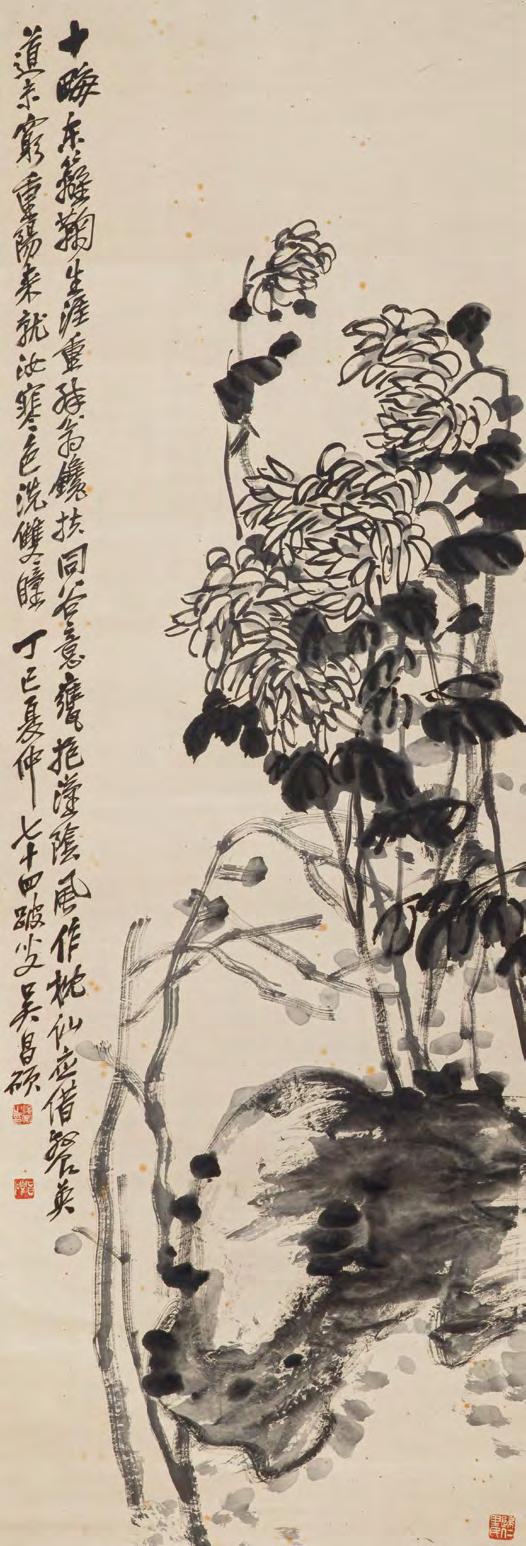 十畮東籬鞠生涯重醉翁鑱扶同谷意甕抱漢陰風作枕仙應借餐英
道未窮重陽來就汝寒色洗雙瞳 丁巳夏仲七十四跛叟吳昌碩
歸仁里民